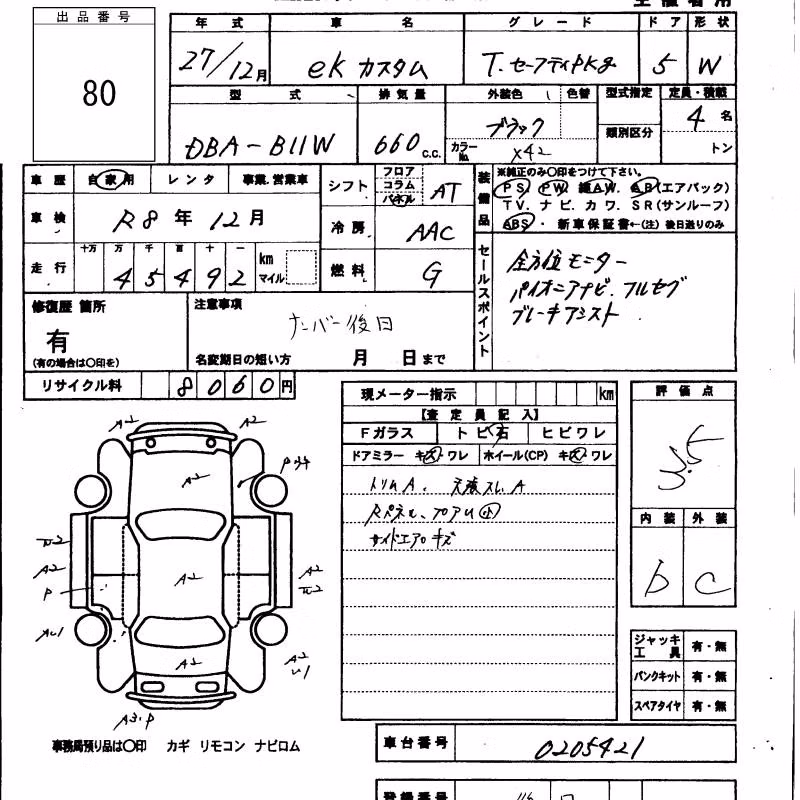 出品番号
80
年式 車名 グレード ドア 形状
27/12月 ek カスタム T.セーフティPKg 5 W
型式 排気量 外装色 色替 型式指定 定員・積載
DBA-B11W 660 c.c. ブラック カラーNo. X42 類別区分 4名
トン
車歴 自家用 レンタ 事業.営業車 シフト フロア コラム パネル AT
装備品 ※純正のみ〇印をつけて下さい。
PS. PW. 純AW. AB(エアバック)
TV. ナビ. カワ. SR(サンルーフ)
ABS・ 新車保証書←(注) 後日送りのみ
車検 R8年12月 冷房 AAC
走行 十万 万 千 百 十 一 km マイル
4 5 4 9 2
燃料 G
セールスポイント
全方位モニター
パイオニアナビ. フルセグ
ブレーキアシスト
修復歴 箇所
有
(有の場合は〇印を)
注意事項
ナンバー後日
名変期日の短い方 月 日まで
リサイクル料 8060円
現メーター指示 km
【査定員記入】
Fガラス トビ石 ヒビワレ
ドアミラー キズ・ワレ ホイール(CP) キズ・ワレ
トリムA. 天張スレA
Rパネル、フロアU
サイドエアロキズ
評価点
3.5
内装 外装
b C
A2 A2
A2
A2
A2
P
A2
A2
A3.P
ジャッキ 工具 有・無
パンクキット 有・無
スペアタイヤ 有・無
事務局預り品は〇印 カギ リモコン ナビロム
車台番号 0205421
登録番号